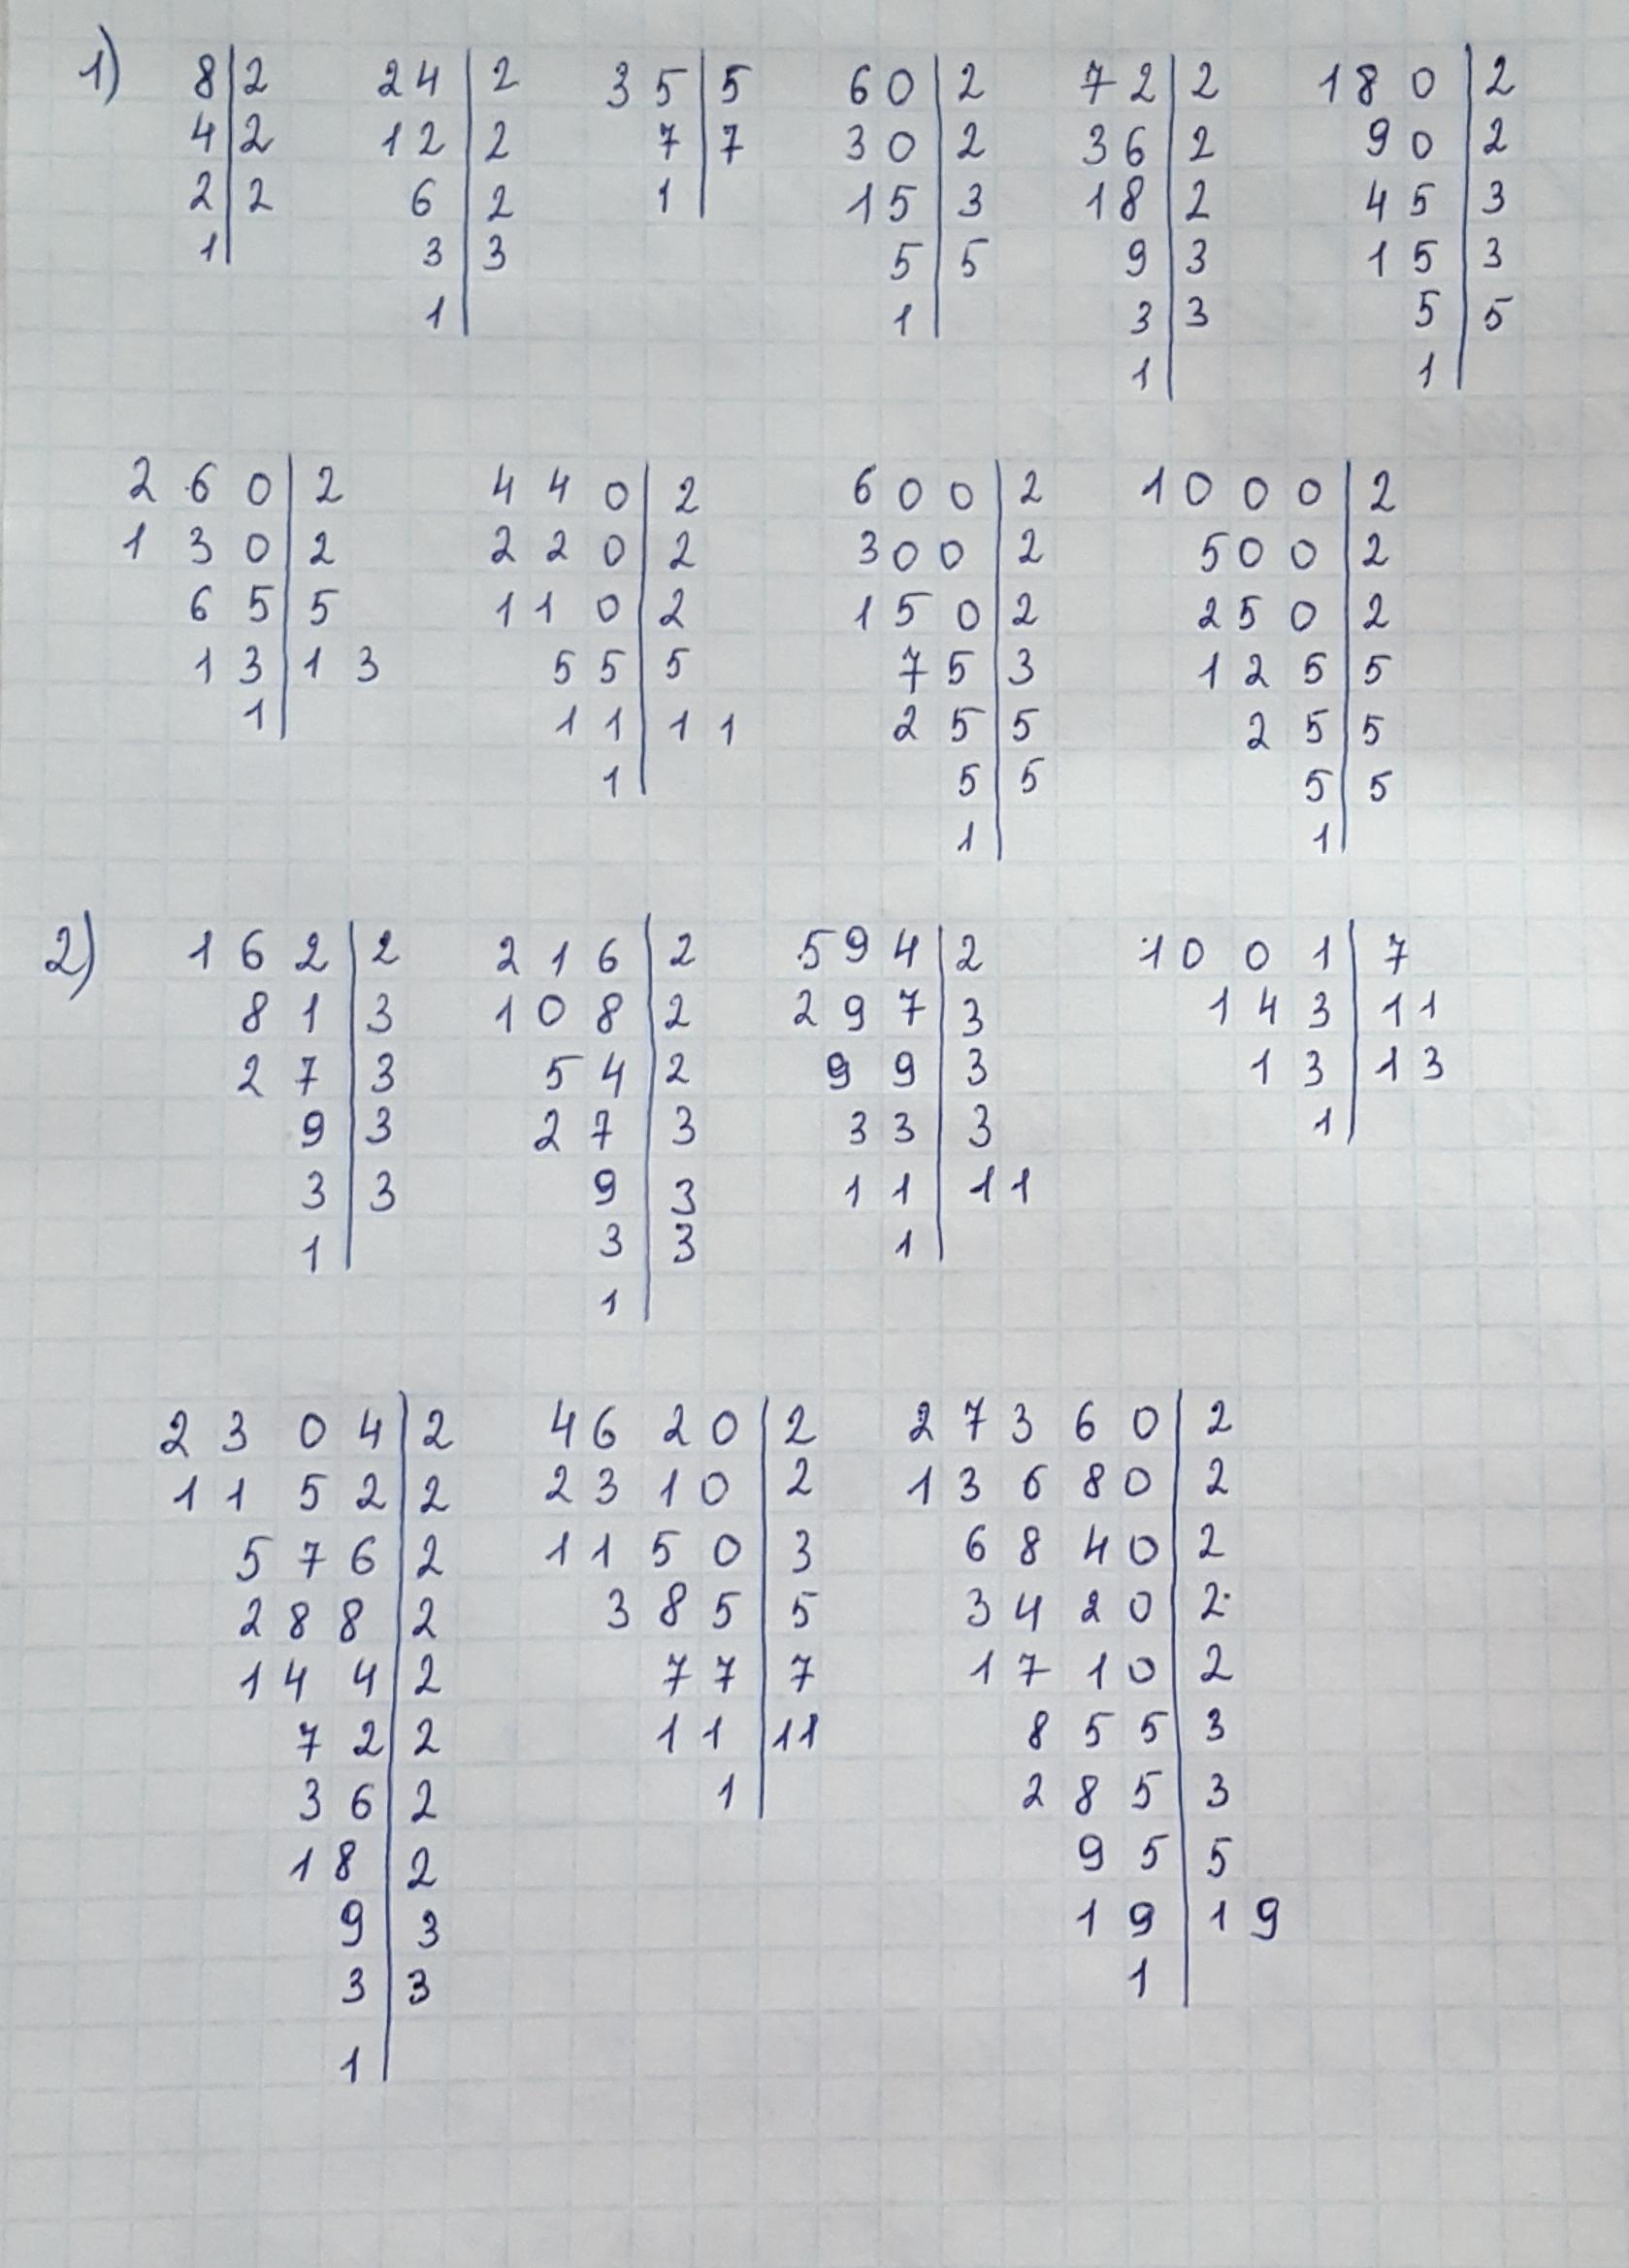 1) 8|2 24|2 35|5 60|2 72|2 180|2
4|2 12|2 7|7 30|2 36|2 90|2
2|2 6|2 1| 15|3 18|2 45|3
1| 3|3 5|5 9|3 15|3
1| 1| 3|3 5|5
1| 1|
260|2 440|2 600|2 1000|2
130|2 220|2 300|2 500|2
65|5 110|2 150|2 250|2
13|13 55|5 75|3 125|5
1| 11|11 25|5 25|5
1| 5|5 5|5
1| 1|
2) 162|2 216|2 594|2 1001|7
81|3 108|2 297|3 143|11
27|3 54|2 99|3 13|13
9|3 27|3 33|3 1|
3|3 9|3 11|11
1| 3|3 1|
1|
2304|2 4620|2 27360|2
1152|2 2310|2 13680|2
576|2 1150|3 6840|2
288|2 385|5 3420|2
144|2 77|7 1710|2
72|2 11|11 855|3
36|2 1| 285|3
18|2 95|5
9|3 19|19
3|3 1|
1|